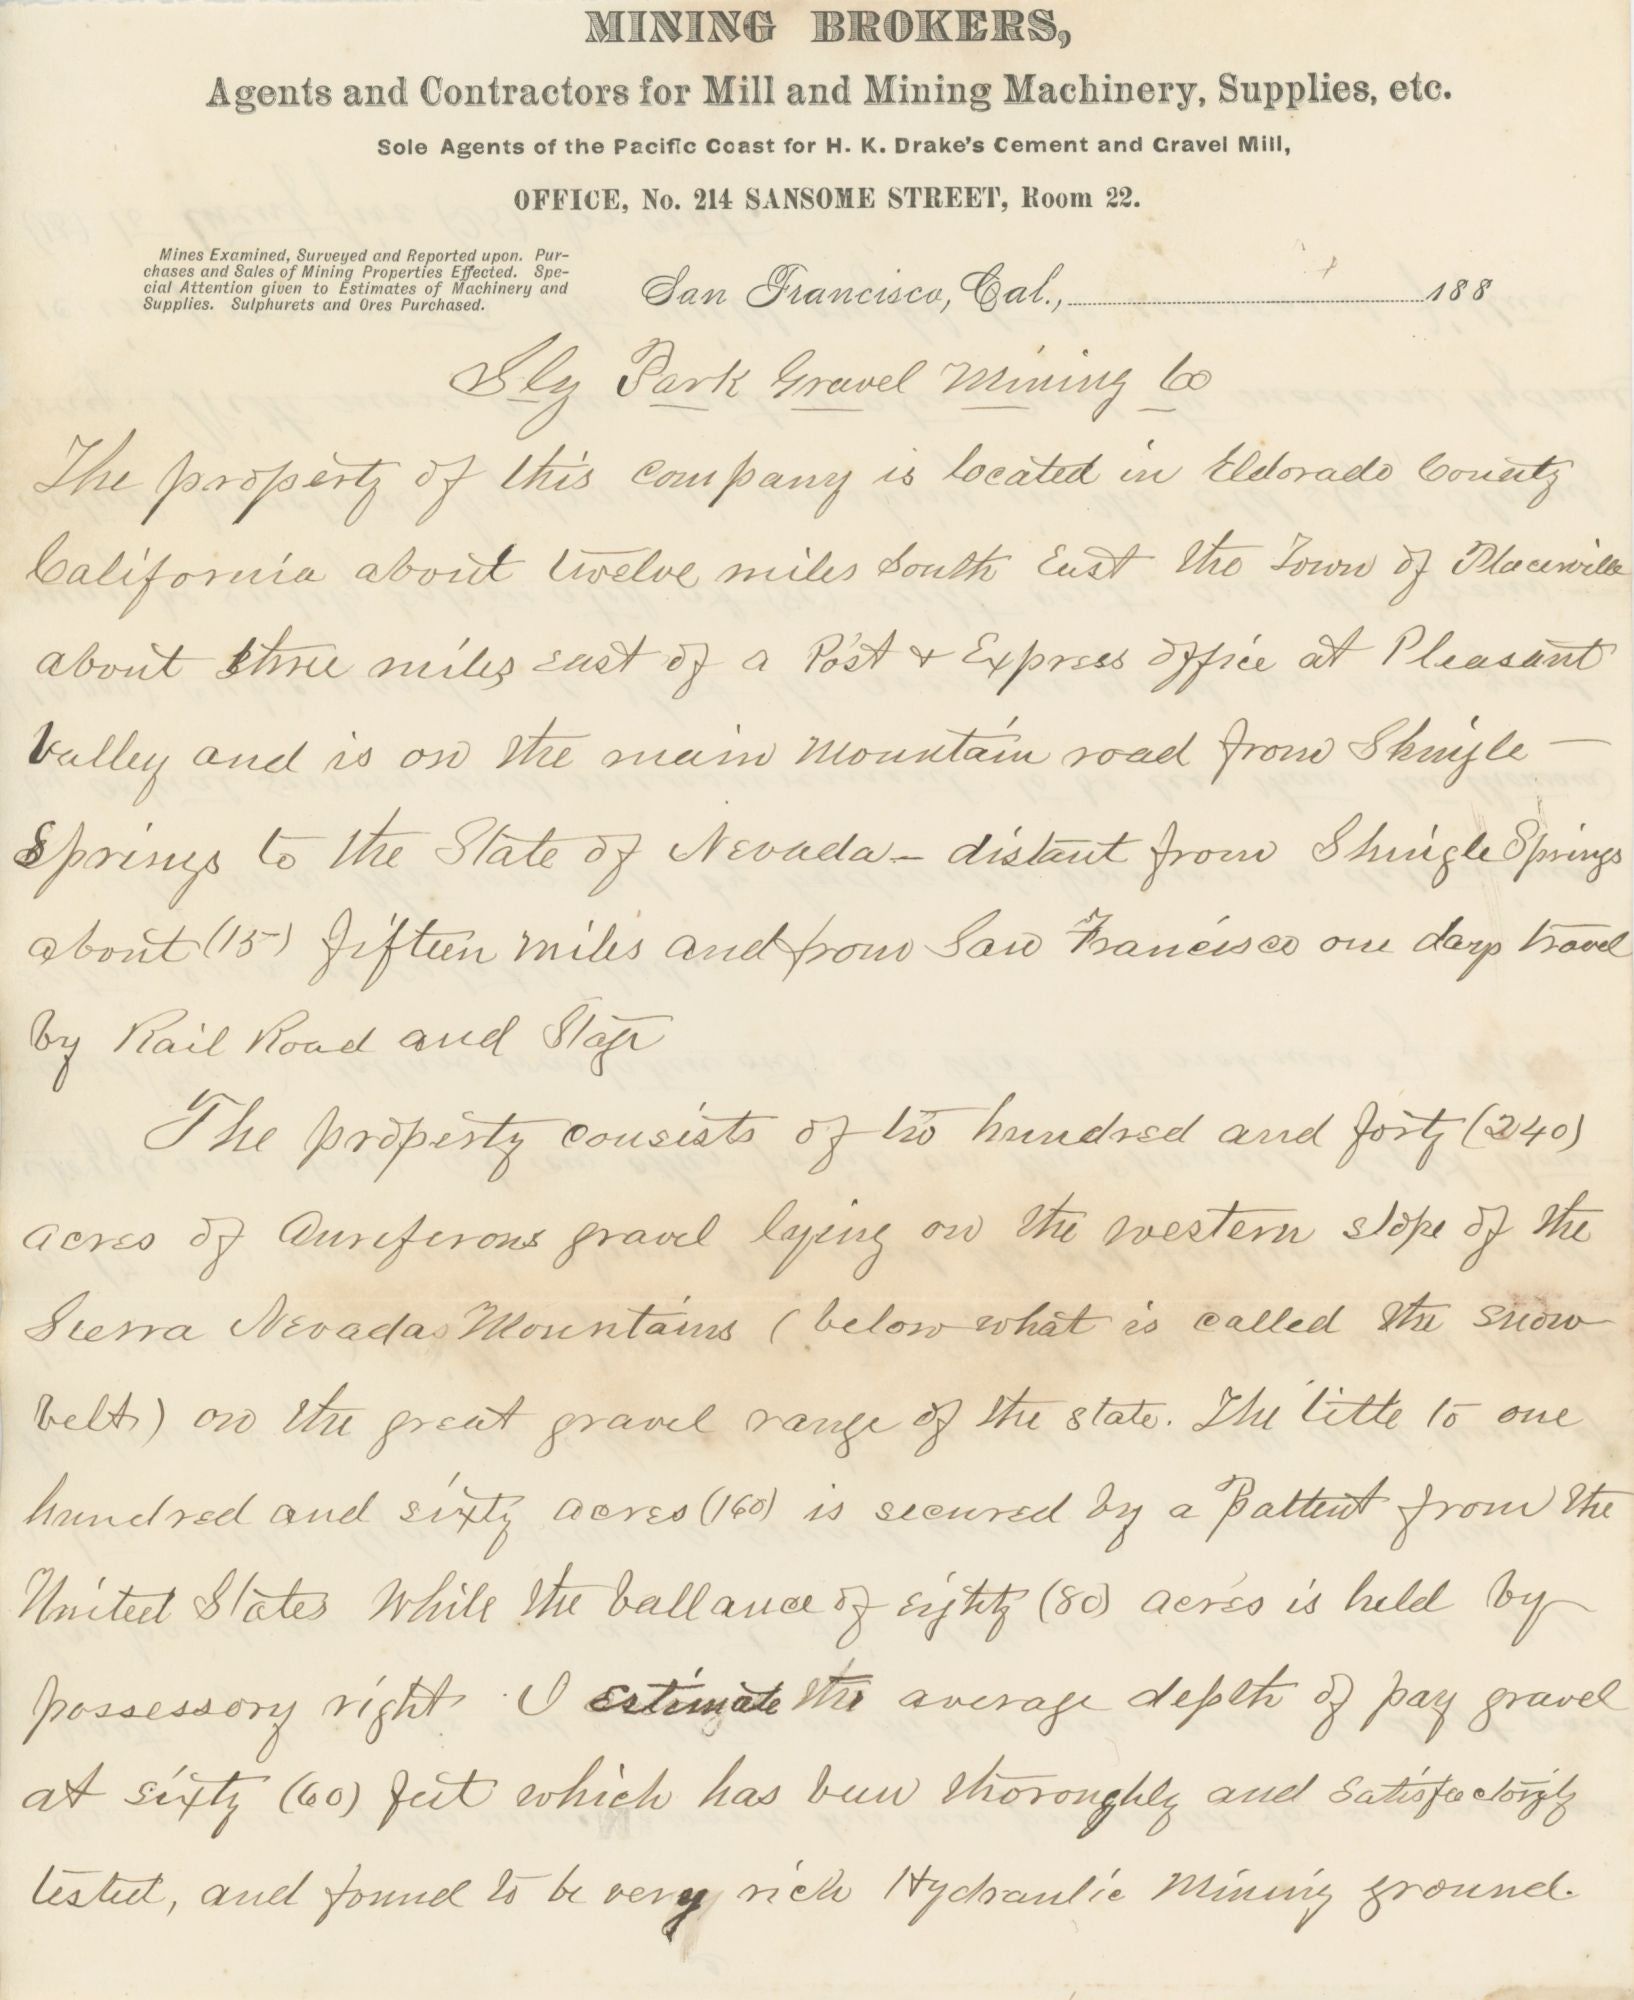 MINING BROKERS,
Agents and Contractors for Mill and Mining Machinery, Supplies, etc.
Sole Agents of the Pacific Coast for H. K. Drake's Cement and Gravel Mill,
OFFICE, No. 214 SANSOME STREET, Room 22.
Mines Examined, Surveyed and Reported upon. Pur-
chases and Sales of Mining Properties Effected. Spe-
cial Attention given to Estimates of Machinery and
Supplies. Sulphurets and Ores Purchased.
San Francisco, Cal., 188
Sly Park Gravel Mining Co
The property of this company is located in Eldorado County
California about twelve miles South East the Town of Placerville
about three miles east of a Post & Express office at Pleasant
Valley and is on the main Mountain road from Shingle –
Springs to the State of Nevada – distant from Shingle Springs
about (15) fifteen miles and from San Francisco one days travel
by Rail Road and Stage
The property consists of two hundred and forty (240)
acres of Auriferous gravel lying on the western slope of the
Sierra Nevadas Mountains (below what is called the snow
belt) on the great gravel range of the state. The title to one
hundred and sixty acres (160) is secured by a Pattent from the
United States While the ballance of eighty (80) acres is held by
possessory right. I estimate the average depth of pay gravel
at sixty (60) feet which has been thoroughly and satisfactorily
tested, and found to be very rich Hydraulic Mining ground.